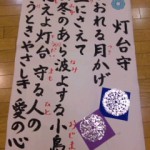 灯台守
おれる月かげ
にさえて
冬のあら波よする小島
えよ灯台守る人の
うときやさしき愛の心